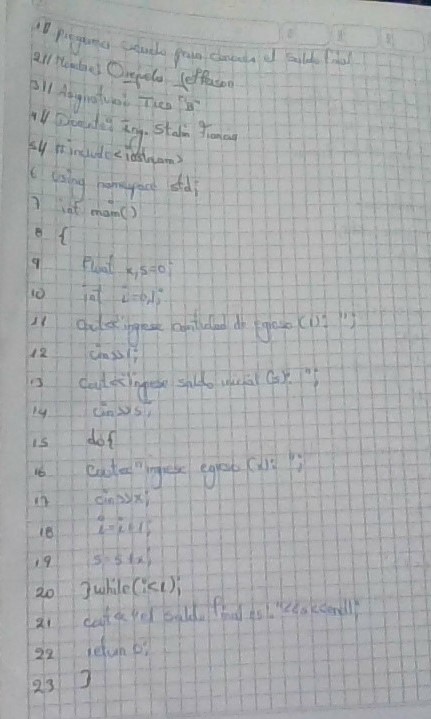 1// Programa creado para conocer el saldo final
2// Nombre: Orepela Jefferson
3// Asignatura: Tics "B"
4// Docente: Ing. Stalin
5// #include<iostream>
6 Using namespace std;
7 int main()
8 {
9 Float x,s=0;
10 int i=0,l;
11 cout<<"ingrese cantidad de egreso (l): ";
12 cin>>l;
13 cout<<"ingrese saldo inicial (s): ";
14 cin>>s;
15 do{
16 cout<<"ingrese egreso (x): ";
17 cin>>x;
18 i=i+1;
19 s=s+x;
20 }while(i<l);
21 cout<<"el saldo final es: "<<s<<endl;
22 return 0;
23 }